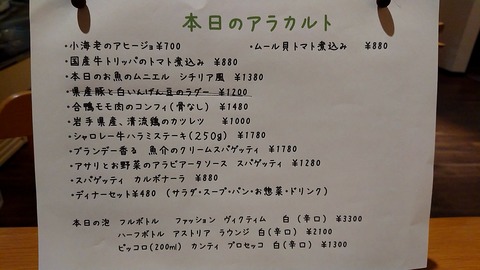 本日のアラカルト
・小海老のアヒージョ ¥700 ・ムール貝トマト煮込み ¥880
・国産牛トリッパのトマト煮込み ¥880
・本日のお魚のムニエル シチリア風 ¥1380
・県産豚と白いんげん豆のラグー ¥1200
・合鴨モモ肉のコンフィ(骨なし) ¥1480
・岩手県産、清流鶏のカツレツ ¥1000
・シャロレー牛ハラミステーキ(250g) ¥1780
・ブランデー香る 魚介のクリームスパゲッティ ¥1780
・アサリとお野菜のアラビアータソース スパゲッティ ¥1280
・スパゲッティ カルボナーラ ¥880
・ディナーセット¥480 (サラダ・スープ・パン・お惣菜・ドリンク)
本日の泡 フルボトル ファッション ヴィクティム 白(辛口) ¥3300
ハーフボトル アストリア ラウンジ 白(辛口) ¥2100
ピッコロ(200ml) カンティ プロセッコ 白(辛口) ¥1300